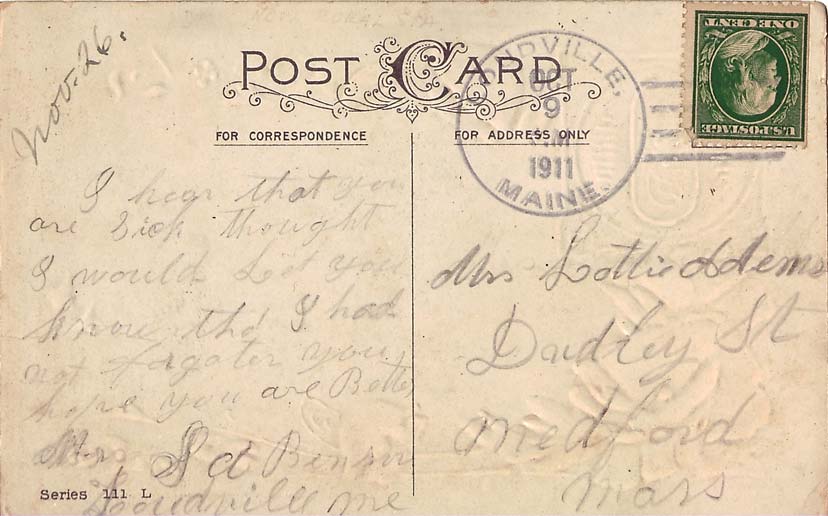 Nov. 26.
POST CARD
FOR CORRESPONDENCE
FOR ADDRESS ONLY
OCT
9
M
1911
MAINE.
U.S. POSTAGE
ONE CENT
I hear that you
are Sick thought
I would Let you
know tha I had
not forgoten you
hope you are Better
Mrs Benson
Loudville me
Mrs Lottie Adems
Dudley St
Medford
Mass
Series 111 L